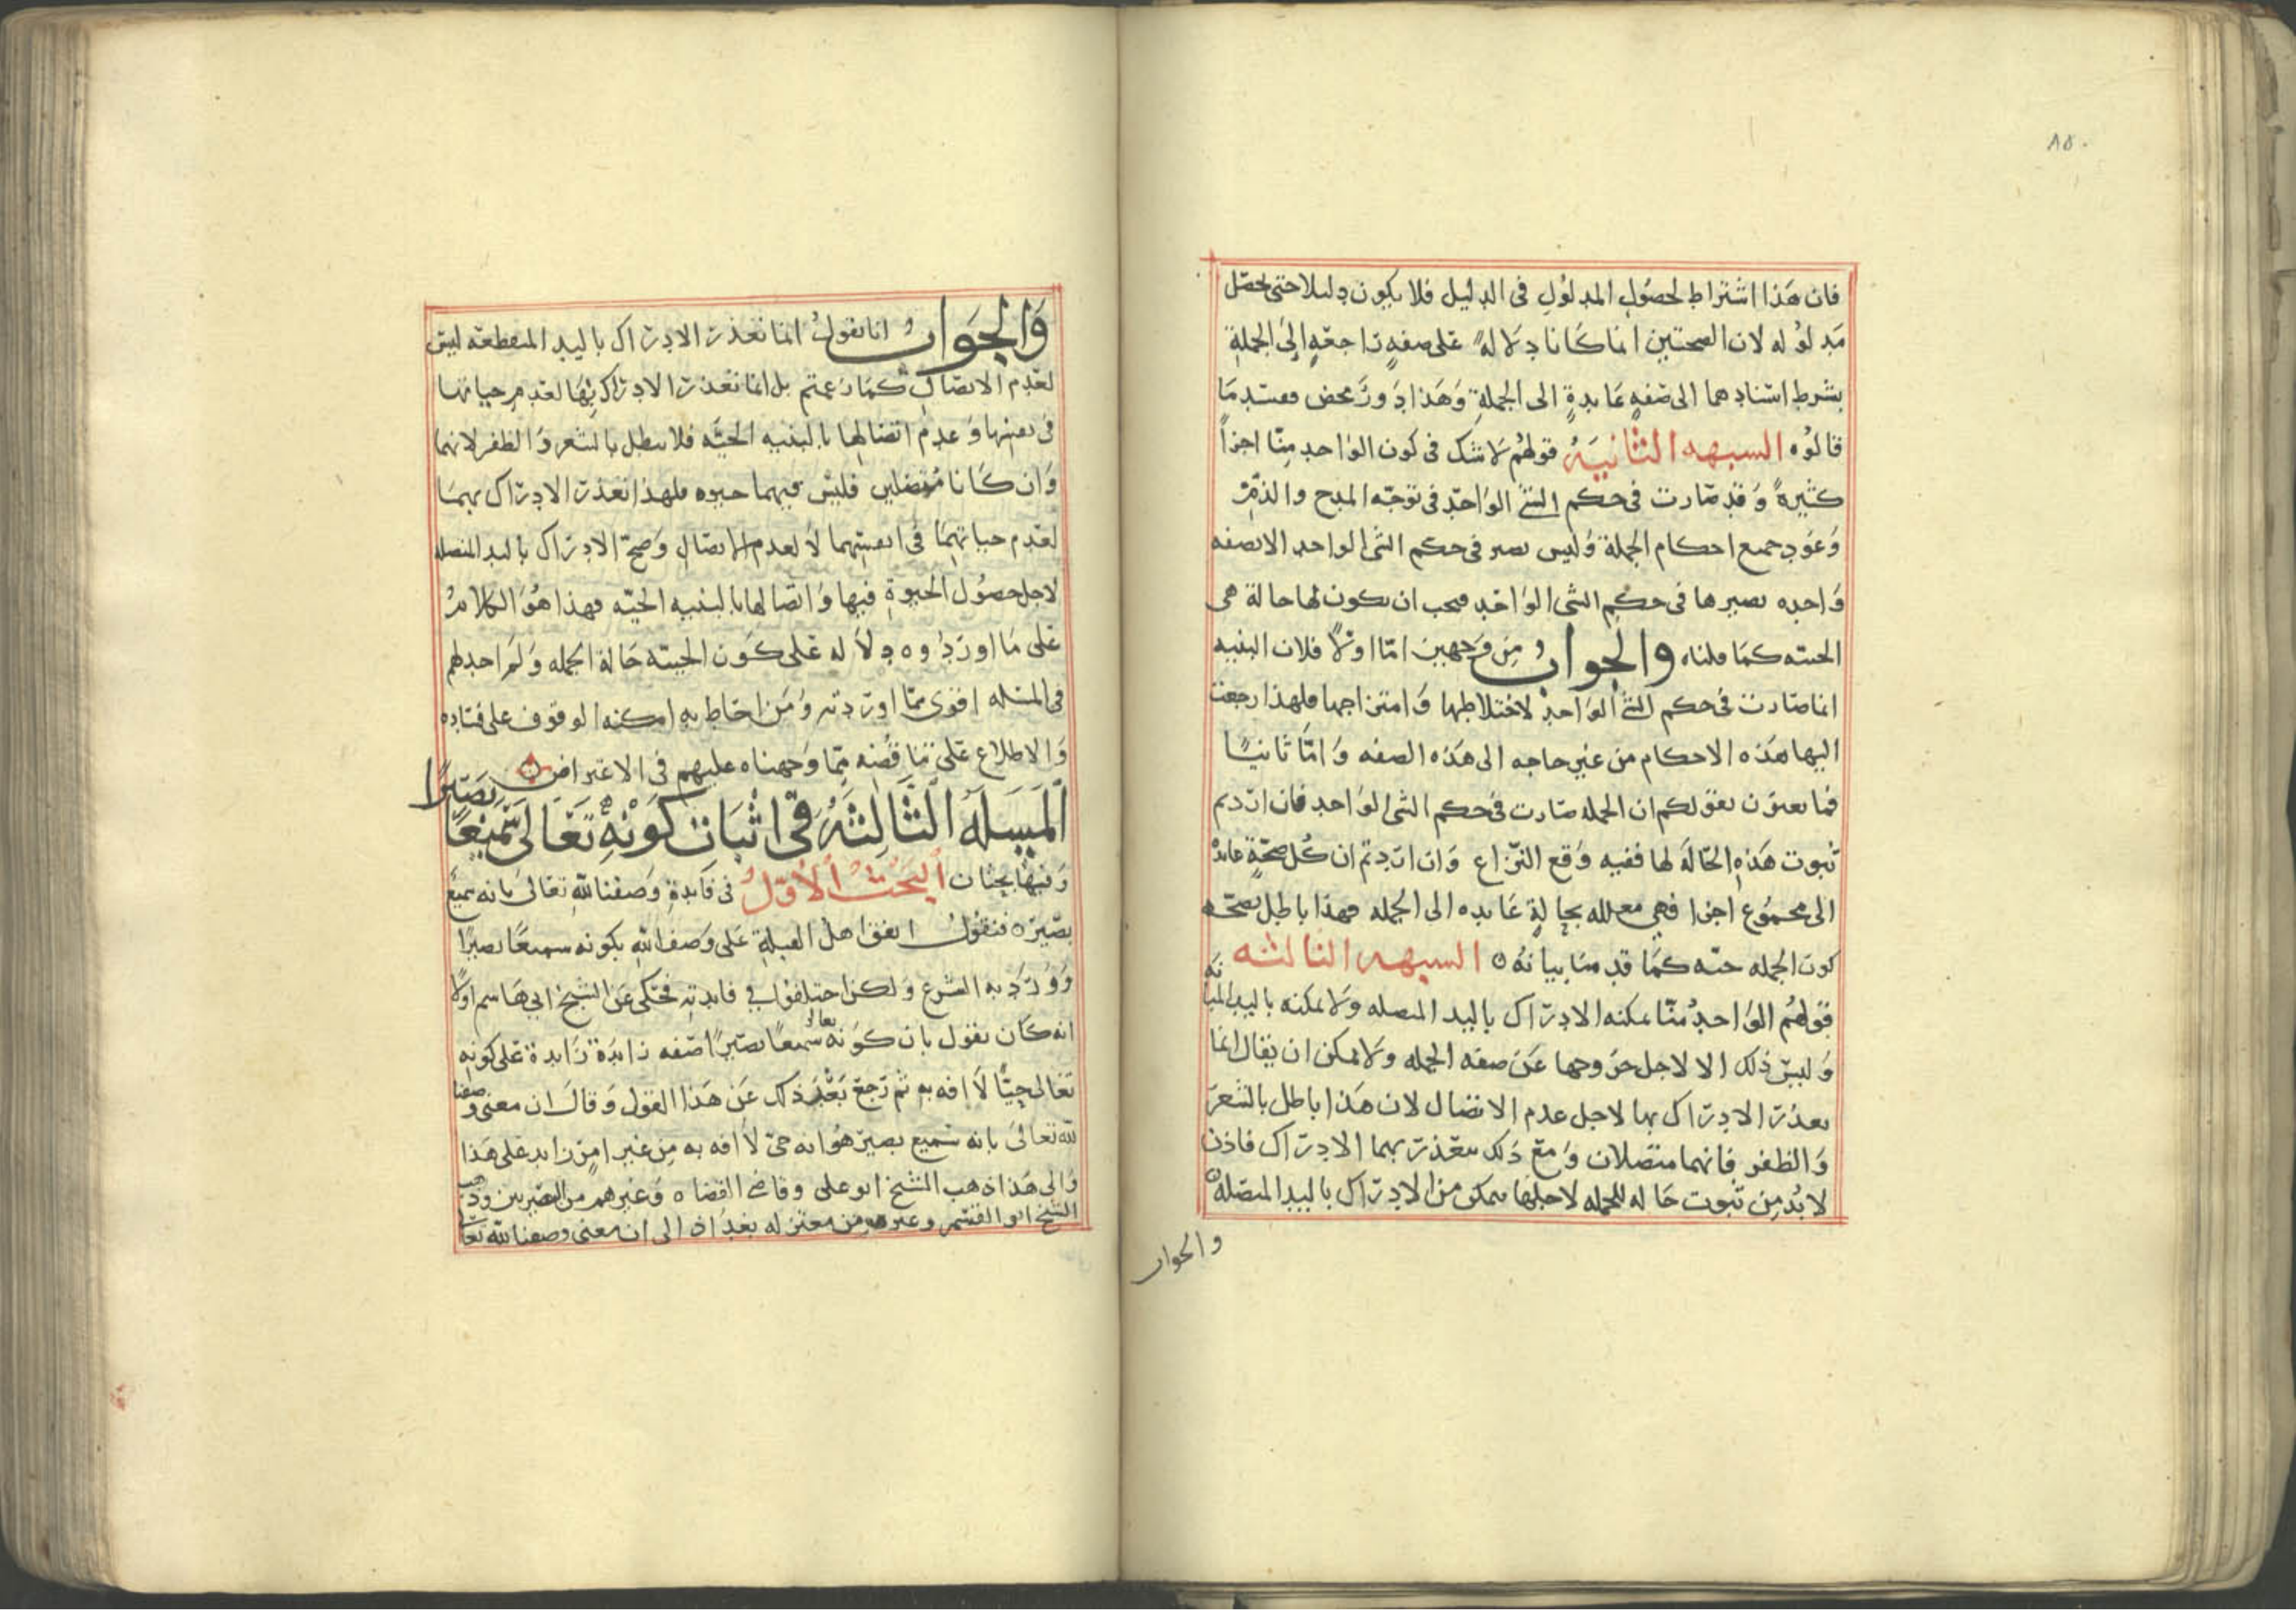 ٨٥٠
فان هذا اشتراط لحصول المدلول فى الدليل فلا يكون دليلا حتى يحصل
مدلوله لان الصحتين انما كانا دلالة على صفةٍ راجعةٍ الى الجملة
بشرط استنادهما الى صفةٍ عايدةٍ الى الجملة وهذا دور محض ففسد ما
قالوه الشبهه الثانية قولهم لا شك فى كون الواحد منا اجزاً
كثيرةً وقد صارت فى حكم الشئ الواحد فى توجّه المدح والذمّ
وعود جميع احكام الجملة وليس تصير فى حكم الشى الواحد الا بصفه
واحده تصيرها فى حكم الشى الواحد فيجب ان يكون لها حالة هى
الحيّيه كما قلناه والجواب من وجهين امّا اولاً فلان البنيه
انما صارت فى حكم الشئ الواحد لاختلاطها وامتزاجها فلهذا رجعت
اليها هذه الاحكام من غير حاجه الى هذه الصفه وامّا ثانيًا
فما تعنون بقولكم ان الجمله صارت فى حكم الشى الواحد فان اردتم
ثبوت هذه الحالة لها ففيه وقع النزاع وان اردتم ان كل صحّةٍ عايدة
الى مجموع اجزا فهى معلله بحالةٍ عايده الى الجمله فهذا باطل بصحّه
كون الجمله حيّه كما قدمنا بيانه ٥ الشبهه الثالثه
قولهم الواحد منّا يمكنه الادراك باليد المتصله ولا يمكنه باليد المباينه
وليس ذلك الا لاجل خروجها عن صفه الجمله ولا يمكن ان يقال انما
تعذر الادراك بها لاجل عدم الاتصال لان هذا باطل بالشعر
والظفر فانهما متصلان ومع ذلك يتعذر بهما الادراك فاذن
لا بُد من ثبوت حاله للجمله لاجلها يتمكن من الادراك باليد المتصله
والجواب
والجواب انا نقول انما تعذر الادراك باليد المنقطعه ليس
لعدم الاتصال كما زعمتم بل انما تعذر الادراك بها لعدم حياتها
فى نفسها وعدم اتصالها بالبنيه الحيّه فلا يبطل بالشعر والظفر لانهما
وان كانا متصلين فليس فيهما حيوه فلهذا تعذر الادراك بهما
لعدم حياتهما فى انفسهما لا لعدم الاتصال وصحّ الادراك باليد المتصله
لاجل حصول الحيوة فيها واتصالها بالبنيه الحيّه فهذا هو الكلام
على ما اوردوه دلالة على كون الحيّيه حالة الجمله ولم اجد لهم
فى المسله اقوى ممّا اوردته ومن احاط به امكنه الوقوف على فساده
والاطلاع على تناقضه مما وجهناه عليهم فى الاعتراض ٥
المسله الثالثة فى اثبات كونه تعالى سميعًا بصيرًا
وفيها بحثان البحث الاول فى فايدة وصفنا لله تعالى بانه سميع
بصير ٥ فنقول اتفق اهل القبلة على وصف الله بكونه سميعًا بصيرًا
وورد به الشرع ولكن اختلفوا فى فايدته فحكى عن الشيخ ابى هاشم اولاً
انه كان يقول بان كونه تعالى سميعًا بصيرًا صفه زايدة زايدة على كونه
تعالى حيًّا لا افه به ثم رجع بعد ذلك عن هذا القول وقال ان معنى وصفنا
لله تعالى بانه سميع بصير هو انه حىّ لا افه به من غير امر زايد على هذا
والى هذا ذهب الشيخ ابو على وقاضى القضاه وغيرهم من البصريين وذهب
الشيخ ابو القسم وغيره من معتزله بغداذ الى ان معنى وصفنا لله تعالى